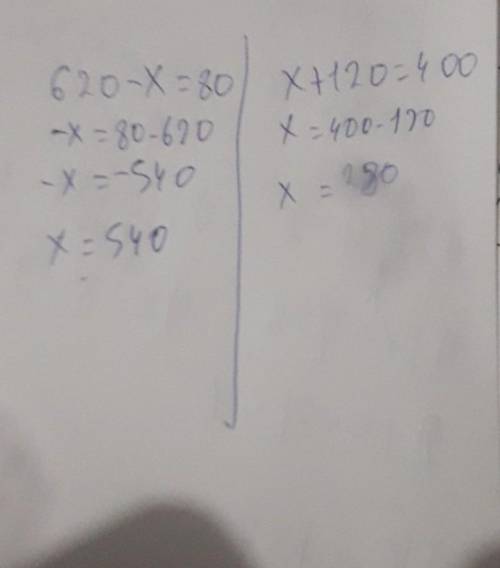 620-x=80
-x=80-620
-x=-540
x=540
x+120=400
x=400-120
x=280